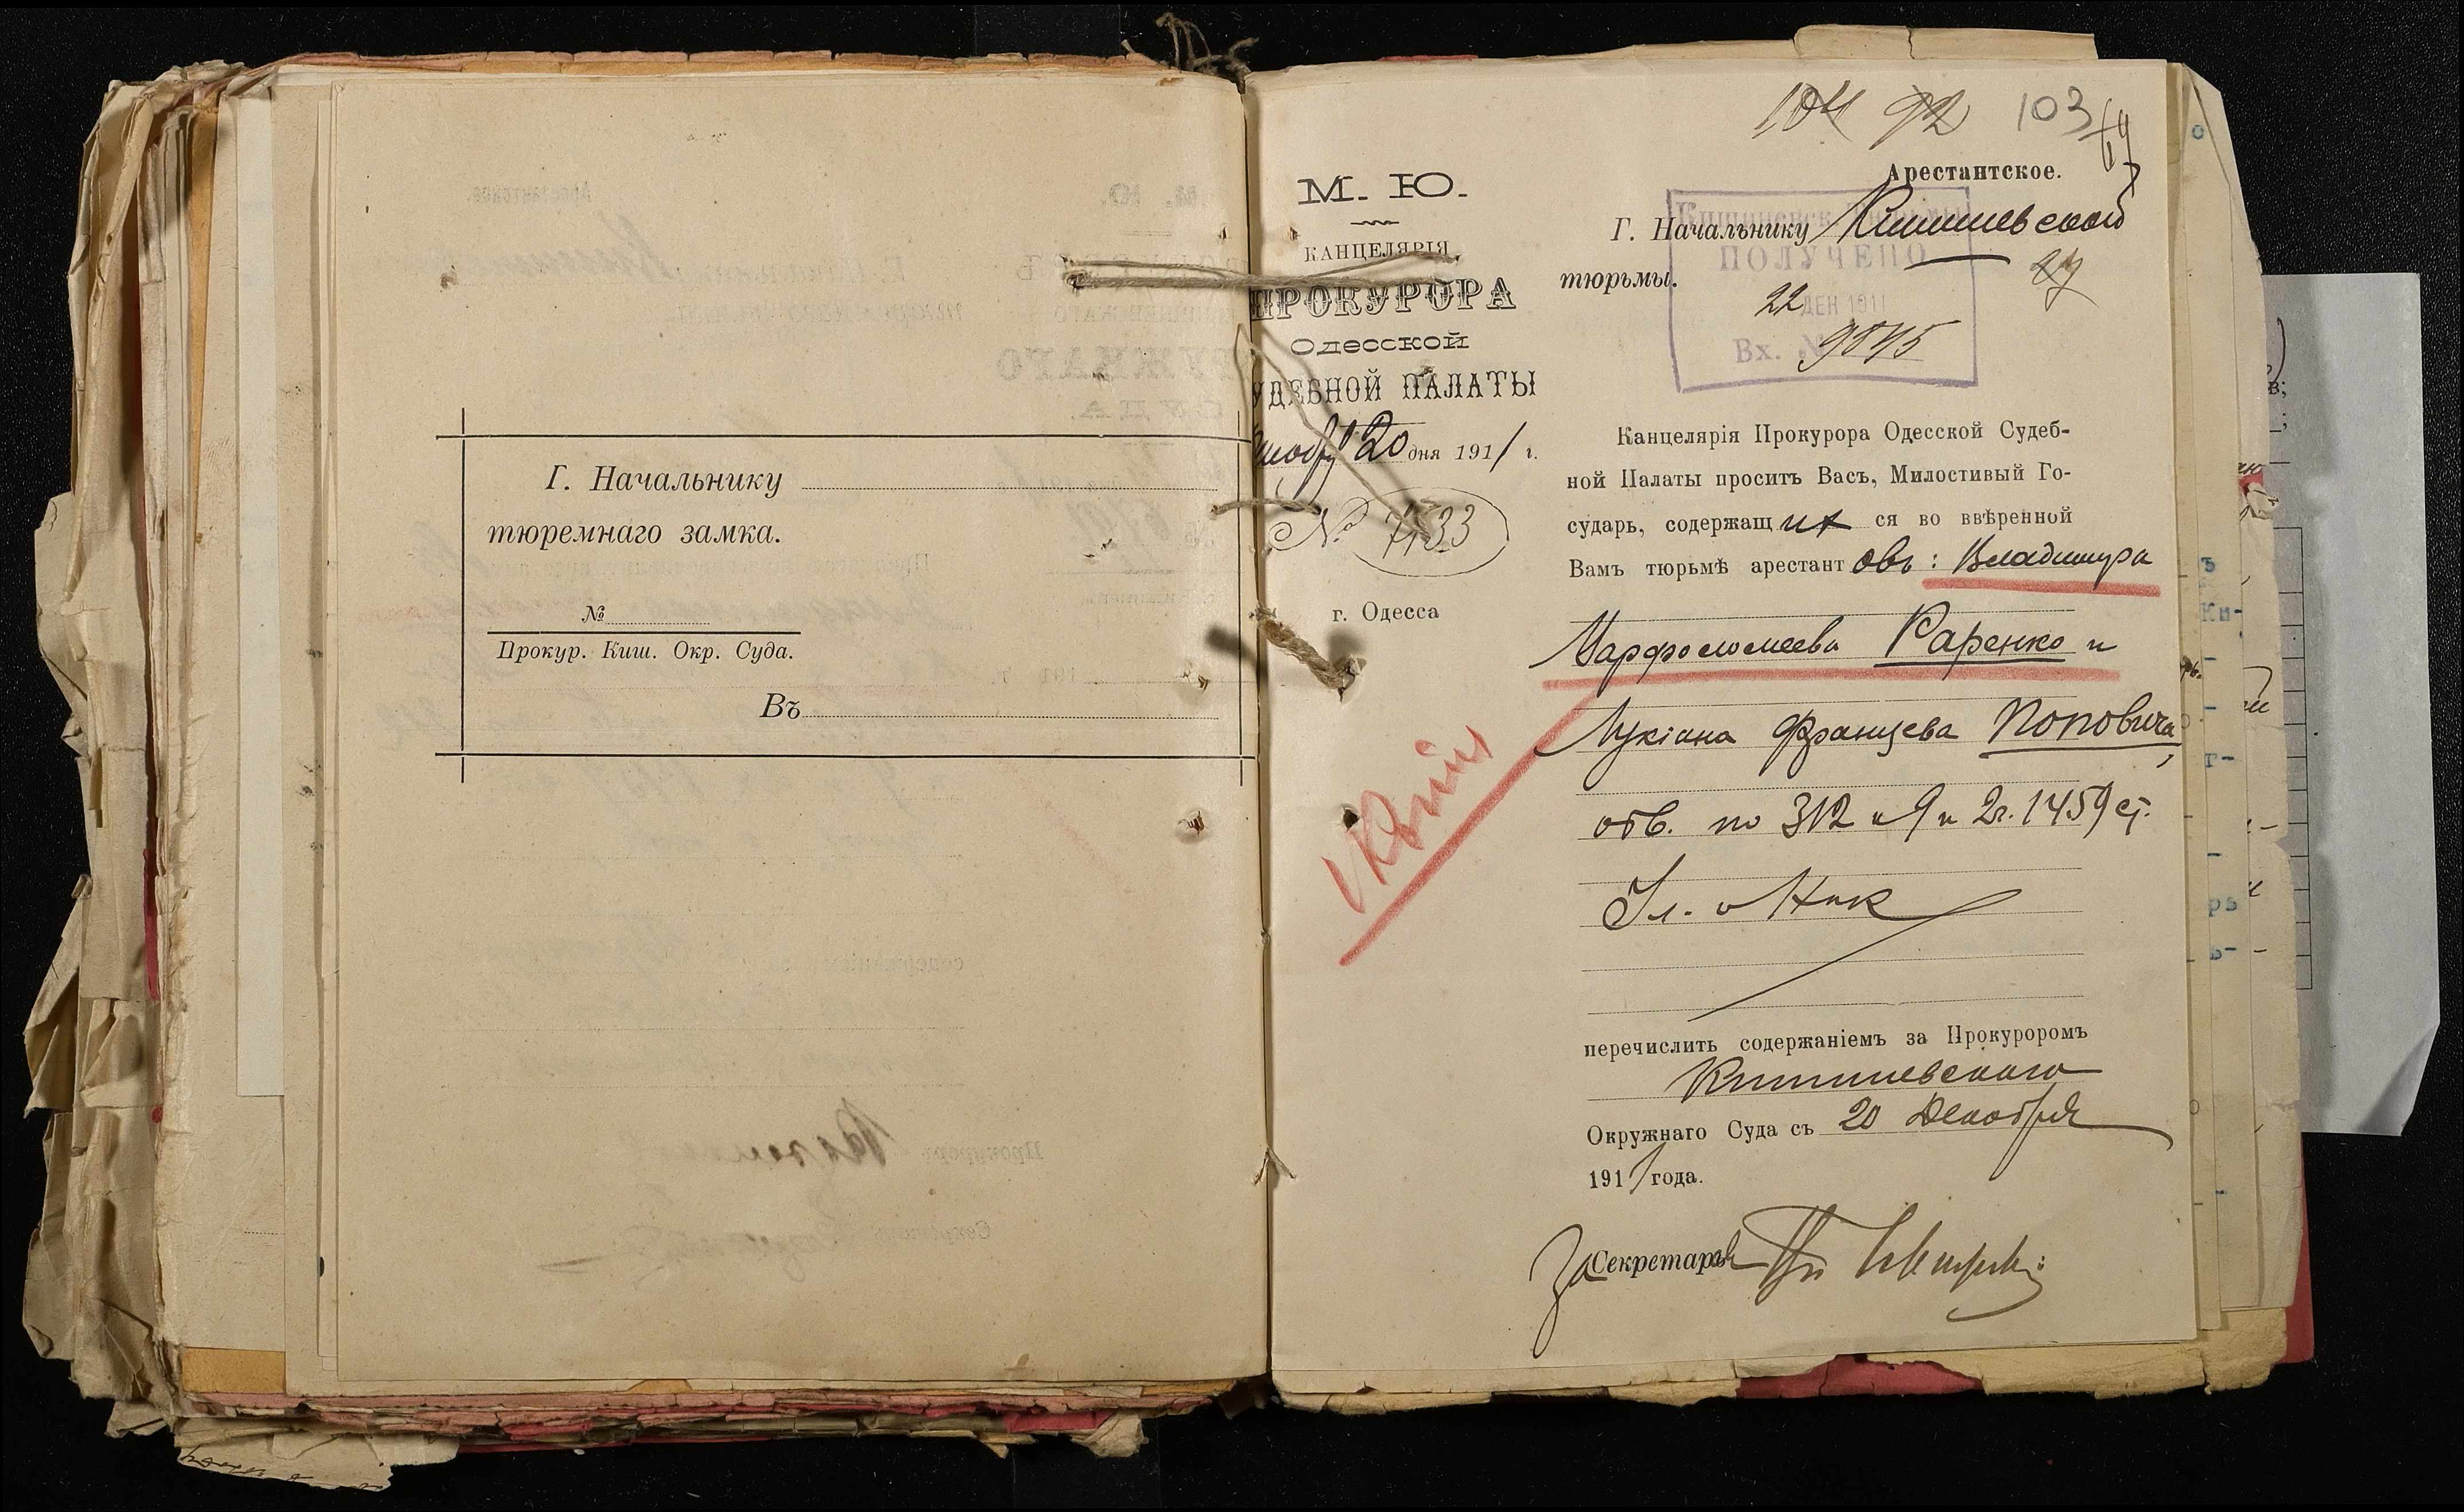 Г. Начальнику
тюремнаго замка.
№
Прокур. Киш. Окр. Суда.
Въ
104 92 103
М. Ю.
КАНЦЕЛЯРІЯ
ПРОКУРОРА
Одесской
УДЕБНОЙ ПАЛАТЫ
20 дня 1911 г.
№ 7533
г. Одесса
Арестантское.
Г. Начальнику Кишиневской
тюрьмы.
ПОЛУЧЕНО
22 ДЕК 1911
Вх. №
Канцелярія Прокурора Одесской Судеб-
ной Палаты проситъ Васъ, Милостивый Го-
сударь, содержащихся во ввѣренной
Вамъ тюрьмѣ арестантовъ: Владимира
Варфоломеева Раренко и
Лукіана Францева Поповича,
обв. по 312 и 9 и 2 ч. 1459 ст.
Ул. о Нак
перечислить содержаніемъ за Прокуроромъ
Кишиневскаго
Окружнаго Суда съ 20 Декабря
1911 года.
За Секретаря